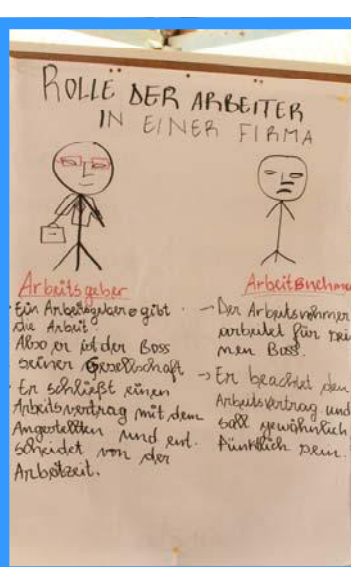 ROLLE DER ARBEITER
IN EINER FIRMA
Arbeitsgeber
Ein Arbeitsgeber gibt
die Arbeit
Also er ist der Boss
seiner Gesellschaft
En schließt einen
Arbeitsvertrag mit dem
Angestellten und ent.
scheidet von der
Arbeitzeit.
Arbeitsnehmer
→ Der Arbeitsnehmer
arbeitet für sei
nen Boss.
→ En beachtet den
Arbeitsvertrag und
soll gewöhnlich
Pünktlich sein.